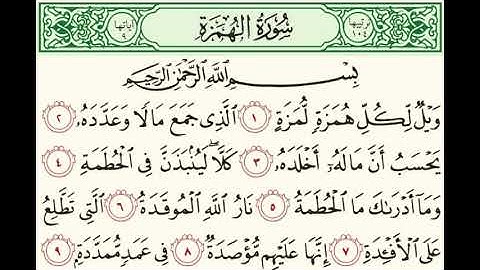 ترتيبها ١٠٤ سورة الهمزة آياتها ٩
بِسْمِ اللَّهِ الرَّحْمَٰنِ الرَّحِيمِ
وَيْلٌ لِّكُلِّ هُمَزَةٍ لُّمَزَةٍ ١ الَّذِي جَمَعَ مَالًا وَعَدَّدَهُۥ ٢
يَحْسَبُ أَنَّ مَالَهُۥٓ أَخْلَدَهُۥ ٣ كَلَّا ۖ لَيُنۢبَذَنَّ فِي الْحُطَمَةِ ٤
وَمَآ أَدْرَىٰكَ مَا الْحُطَمَةُ ٥ نَارُ اللَّهِ الْمُوقَدَةُ ٦ الَّتِي تَطَّلِعُ
عَلَى الْأَفْـِٔدَةِ ٧ إِنَّهَا عَلَيْهِم مُّؤْصَدَةٌ ٨ فِي عَمَدٍ مُّمَدَّدَةٍۭ ٩